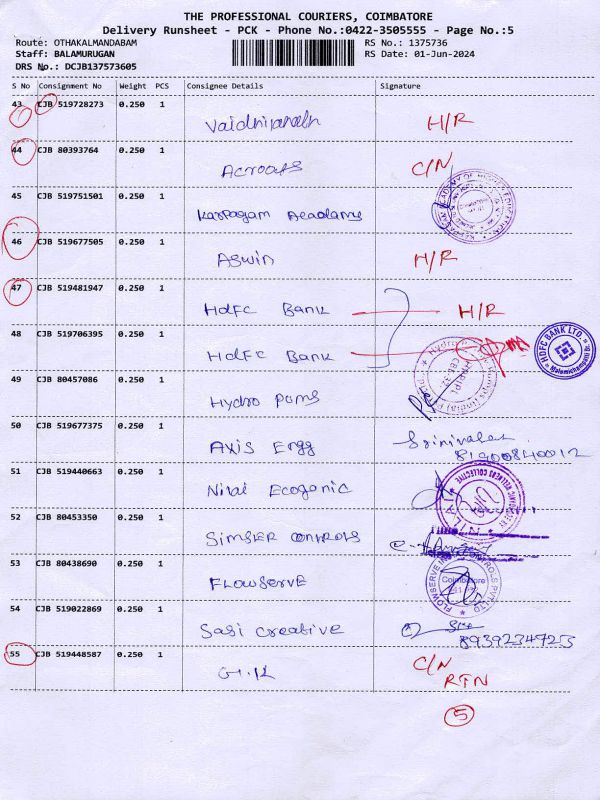 THE PROFESSIONAL COURIERS, COIMBATORE
Delivery Runsheet - PCK - Phone No.:0422-3505555 - Page No.:5
Route: OTHAKALMANDABAM RS No.: 1375736
Staff: BALAMURUGAN RS Date: 01-Jun-2024
DRS No.: DCJB137573605
S No Consignment No Weight PCS Consignee Details Signature
43 CJB 519728273 0.250 1
H/R
44 CJB 80393764 0.250 1
C/N
45 CJB 519751501 0.250 1
Karpagam Academy
46 CJB 519677505 0.250 1
Aswin H/R
47 CJB 519481947 0.250 1
HDFC Bank H/R
48 CJB 519706395 0.250 1
HDFC Bank
HDFC BANK LTD.
49 CJB 80457086 0.250 1
Hydro Poms
50 CJB 519677375 0.250 1
Axis Engg
51 CJB 519440663 0.250 1
Nilai Ecogenic
52 CJB 80453350 0.250 1
CONTROLS
53 CJB 80438690 0.250 1
Flowserve
Coimbatore
54 CJB 519022869 0.250 1
Sasi Creative
8939234723
55 CJB 519448587 0.250 1
G.K C/N
RTN
5